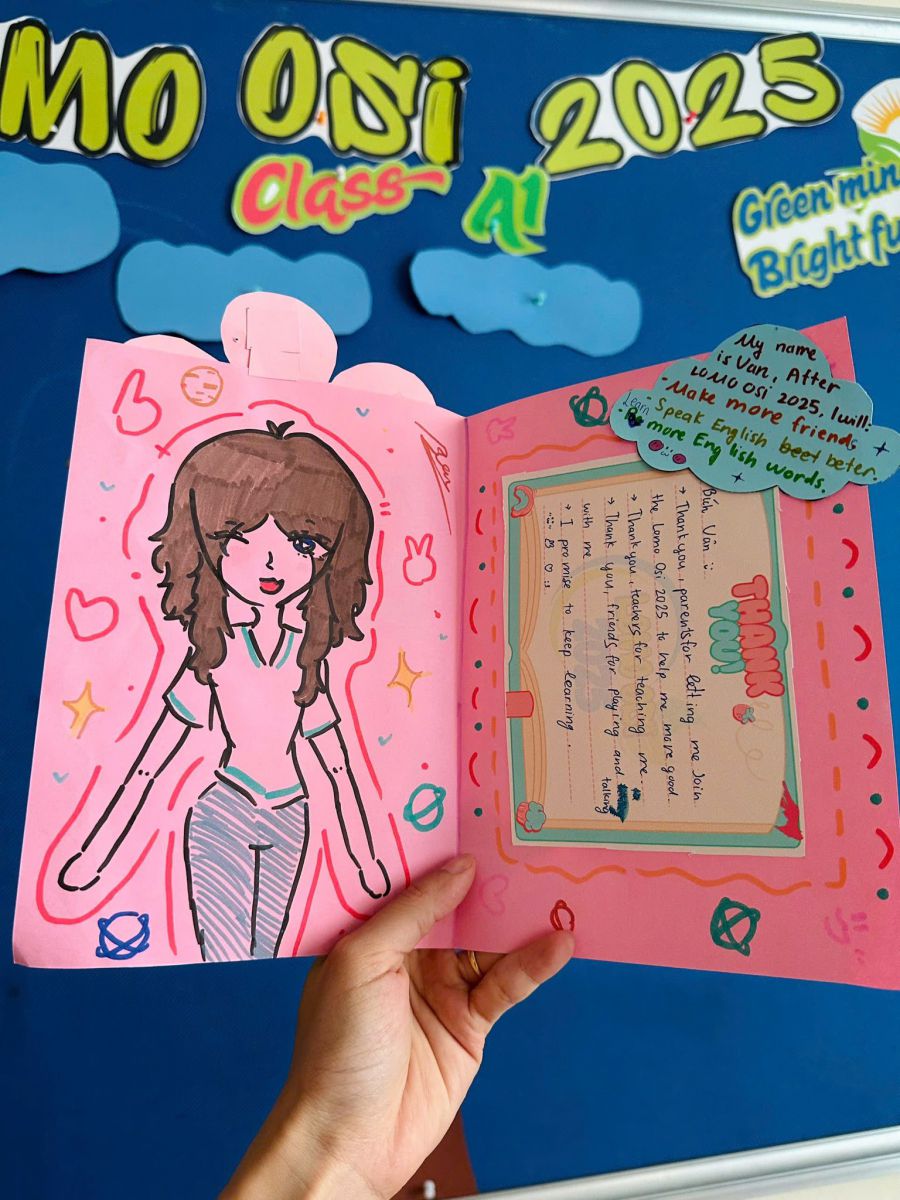 MO OSI 2025
Class A1
Green min
Bright fu
My name
is Van, After
LOMO OSI 2025, I will:
-Make more friends
-Speak English beet beter.
-Learn more English words.
THANK
YOU!
Bích Vân :
→ Thank you, parents for letting me join
the Lomo Osi 2025 to help me more good
→ Thank you, teachers for teaching me.
→ Thank you, friends for playing and talking
with me
→ I promise to keep learning.